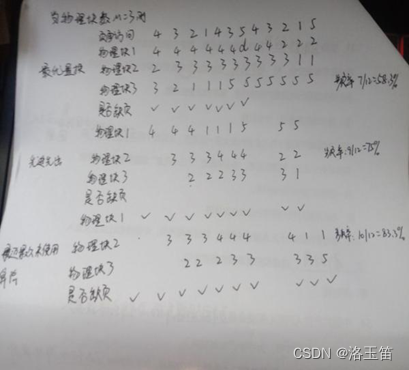 当物理块数M=3时
页面访问 4 3 2 1 4 3 5 4 3 2 1 5
物理块1 4 4 4 4 4 4 d 4 4 2 2 2
最优置换 物理块2 2 3 3 3 3 3 3 3 3 3 1 1
物理块3 3 2 1 1 1 5 5 5 5 5 5 缺页率 7/12=58.3%
是否缺页 ✓ ✓ ✓ ✓ ✓ ✓
物理块1 4 4 4 1 1 1 5 5 5
先进先出 物理块2 3 3 3 4 4 4 2 2 缺页率:9/12=75%
物理块3 2 2 2 3 3 3 1
是否缺页
物理块1 ✓ ✓ ✓ ✓ ✓ ✓ ✓ ✓ ✓
最近最久未使用 物理块2 3 3 3 4 4 4 4 1 1 缺页率:10/12=83.3%
算法 物理块3 2 2 2 3 3 3 3 5
是否缺页 ✓ ✓ ✓ ✓ ✓ ✓ ✓ ✓ ✓ ✓
CSDN @洛玉笛